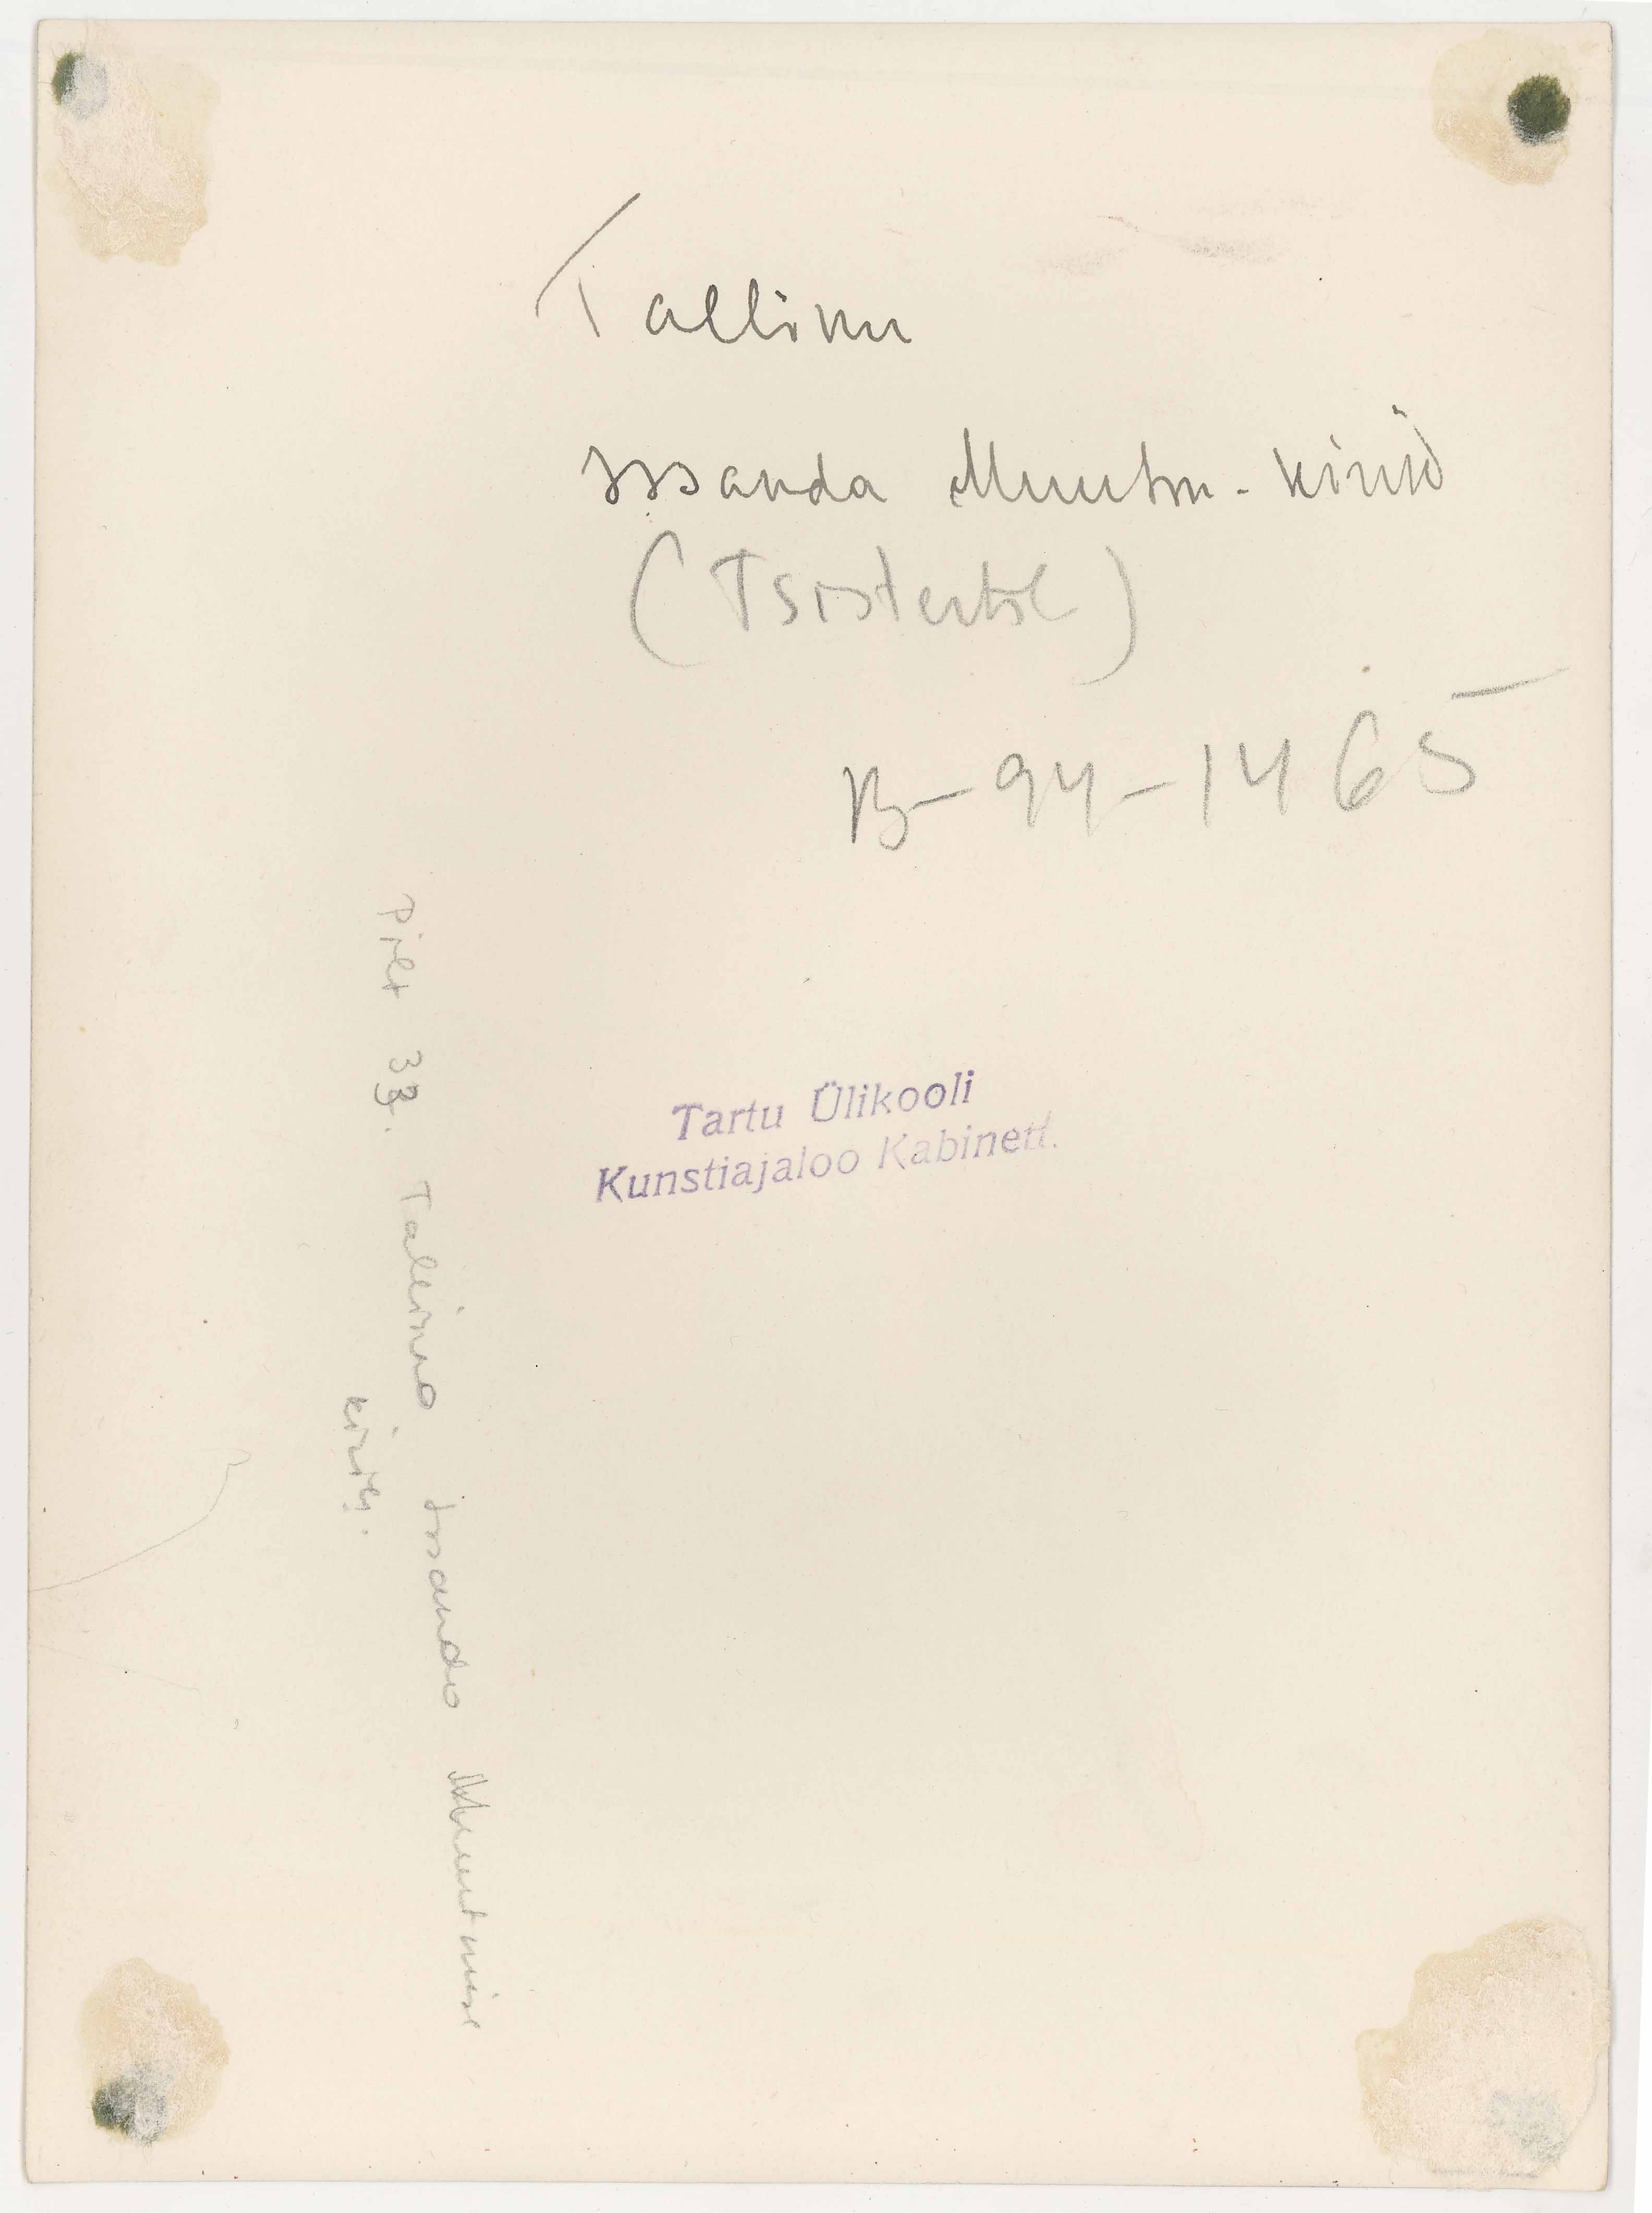 Tallinn
Issanda Muutm.-kirik
(Tsistertsl)
B-94-1465
Tartu Ülikooli
Kunstiajaloo Kabinett.
Pilt 33. Tallinna Issanda Muutmise
kirik.